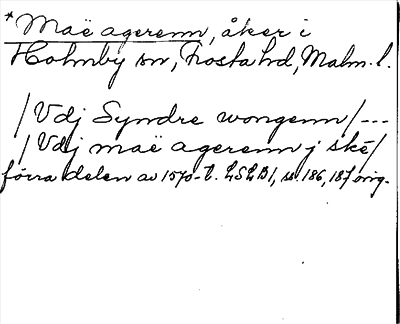 *Maë agerenn, åker i
Holmby sn, Frosta hd, Malm. l.
/Vdj Syndre wongenn/---
/Vdj maë agerenn j skë/
förra delen av 1570-t. LSLB1, s. 186, 187 orig.